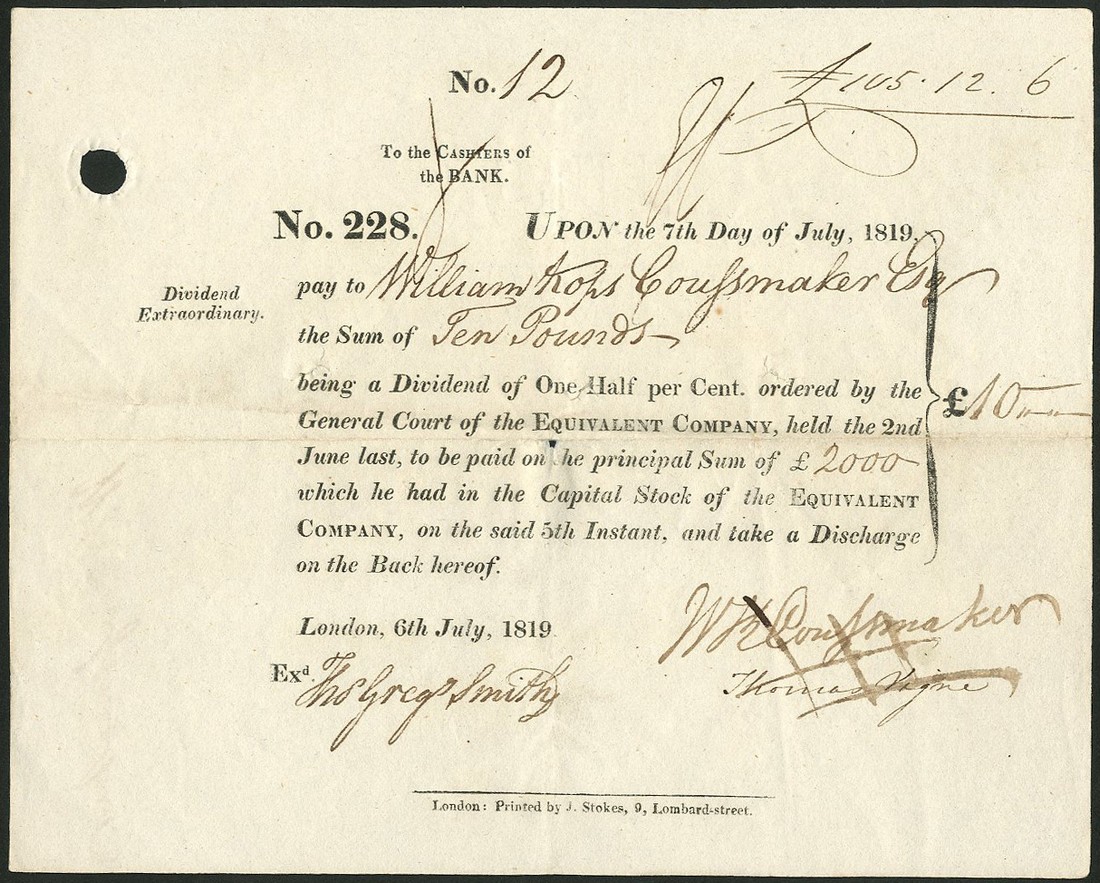 No. 12
£105. 12. 6
To the CASHIERS of
the BANK.
No. 228.
UPON the 7th Day of July, 1819,
pay to William Kops Coussmaker Esq
Dividend
Extraordinary.
the Sum of Ten Pounds
being a Dividend of One Half per Cent. ordered by the
£10
General Court of the EQUIVALENT COMPANY, held the 2nd
June last, to be paid on he principal Sum of £ 2000
which he had in the Capital Stock of the EQUIVALENT
COMPANY, on the said 5th Instant, and take a Discharge
on the Back hereof.
London, 6th July, 1819
WK Coussmaker
Exd. Thos Gregy Smith
Thomas Vigne
London: Printed by J. Stokes, 9, Lombard-street.